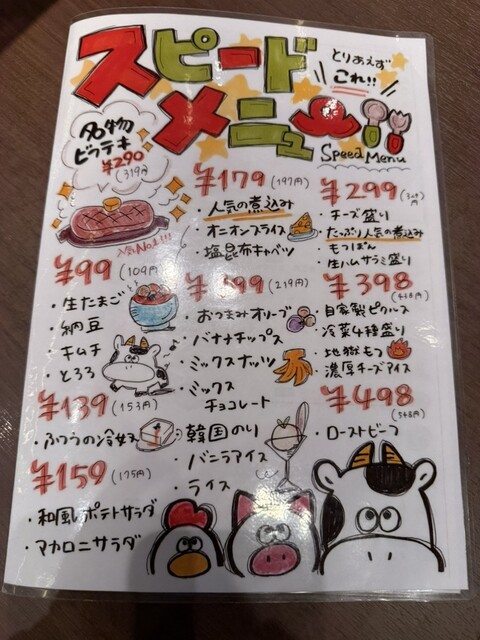 スピード
メニュー
とりあえず
これ!!
Speed Menu
名物
ビフテキ
¥290
(319円)
人気No.1!!!
¥99 (109円)
・生たまご
・納豆
・キムチ
・とろろ
¥139 (153円)
・ふつうの冷奴
¥159 (175円)
・和風ポテトサラダ
・マカロニサラダ
¥179 (197円)
・人気の煮込み
・オニオンスライス
・塩昆布キャベツ
¥199 (219円)
・おつまみオリーブ
・バナナチップス
・ミックスナッツ
・ミックス
チョコレート
・韓国のり
・バニラアイス
・ライス
¥299
・チーズ盛り
・たっぷり人気の煮込み
・もつぽん
・生ハムサラミ盛り
¥398
・自家製ピクルス
・冷菜4種盛り
・地獄もつ
・濃厚チーズアイス
¥498
(548円)
・ローストビーフ